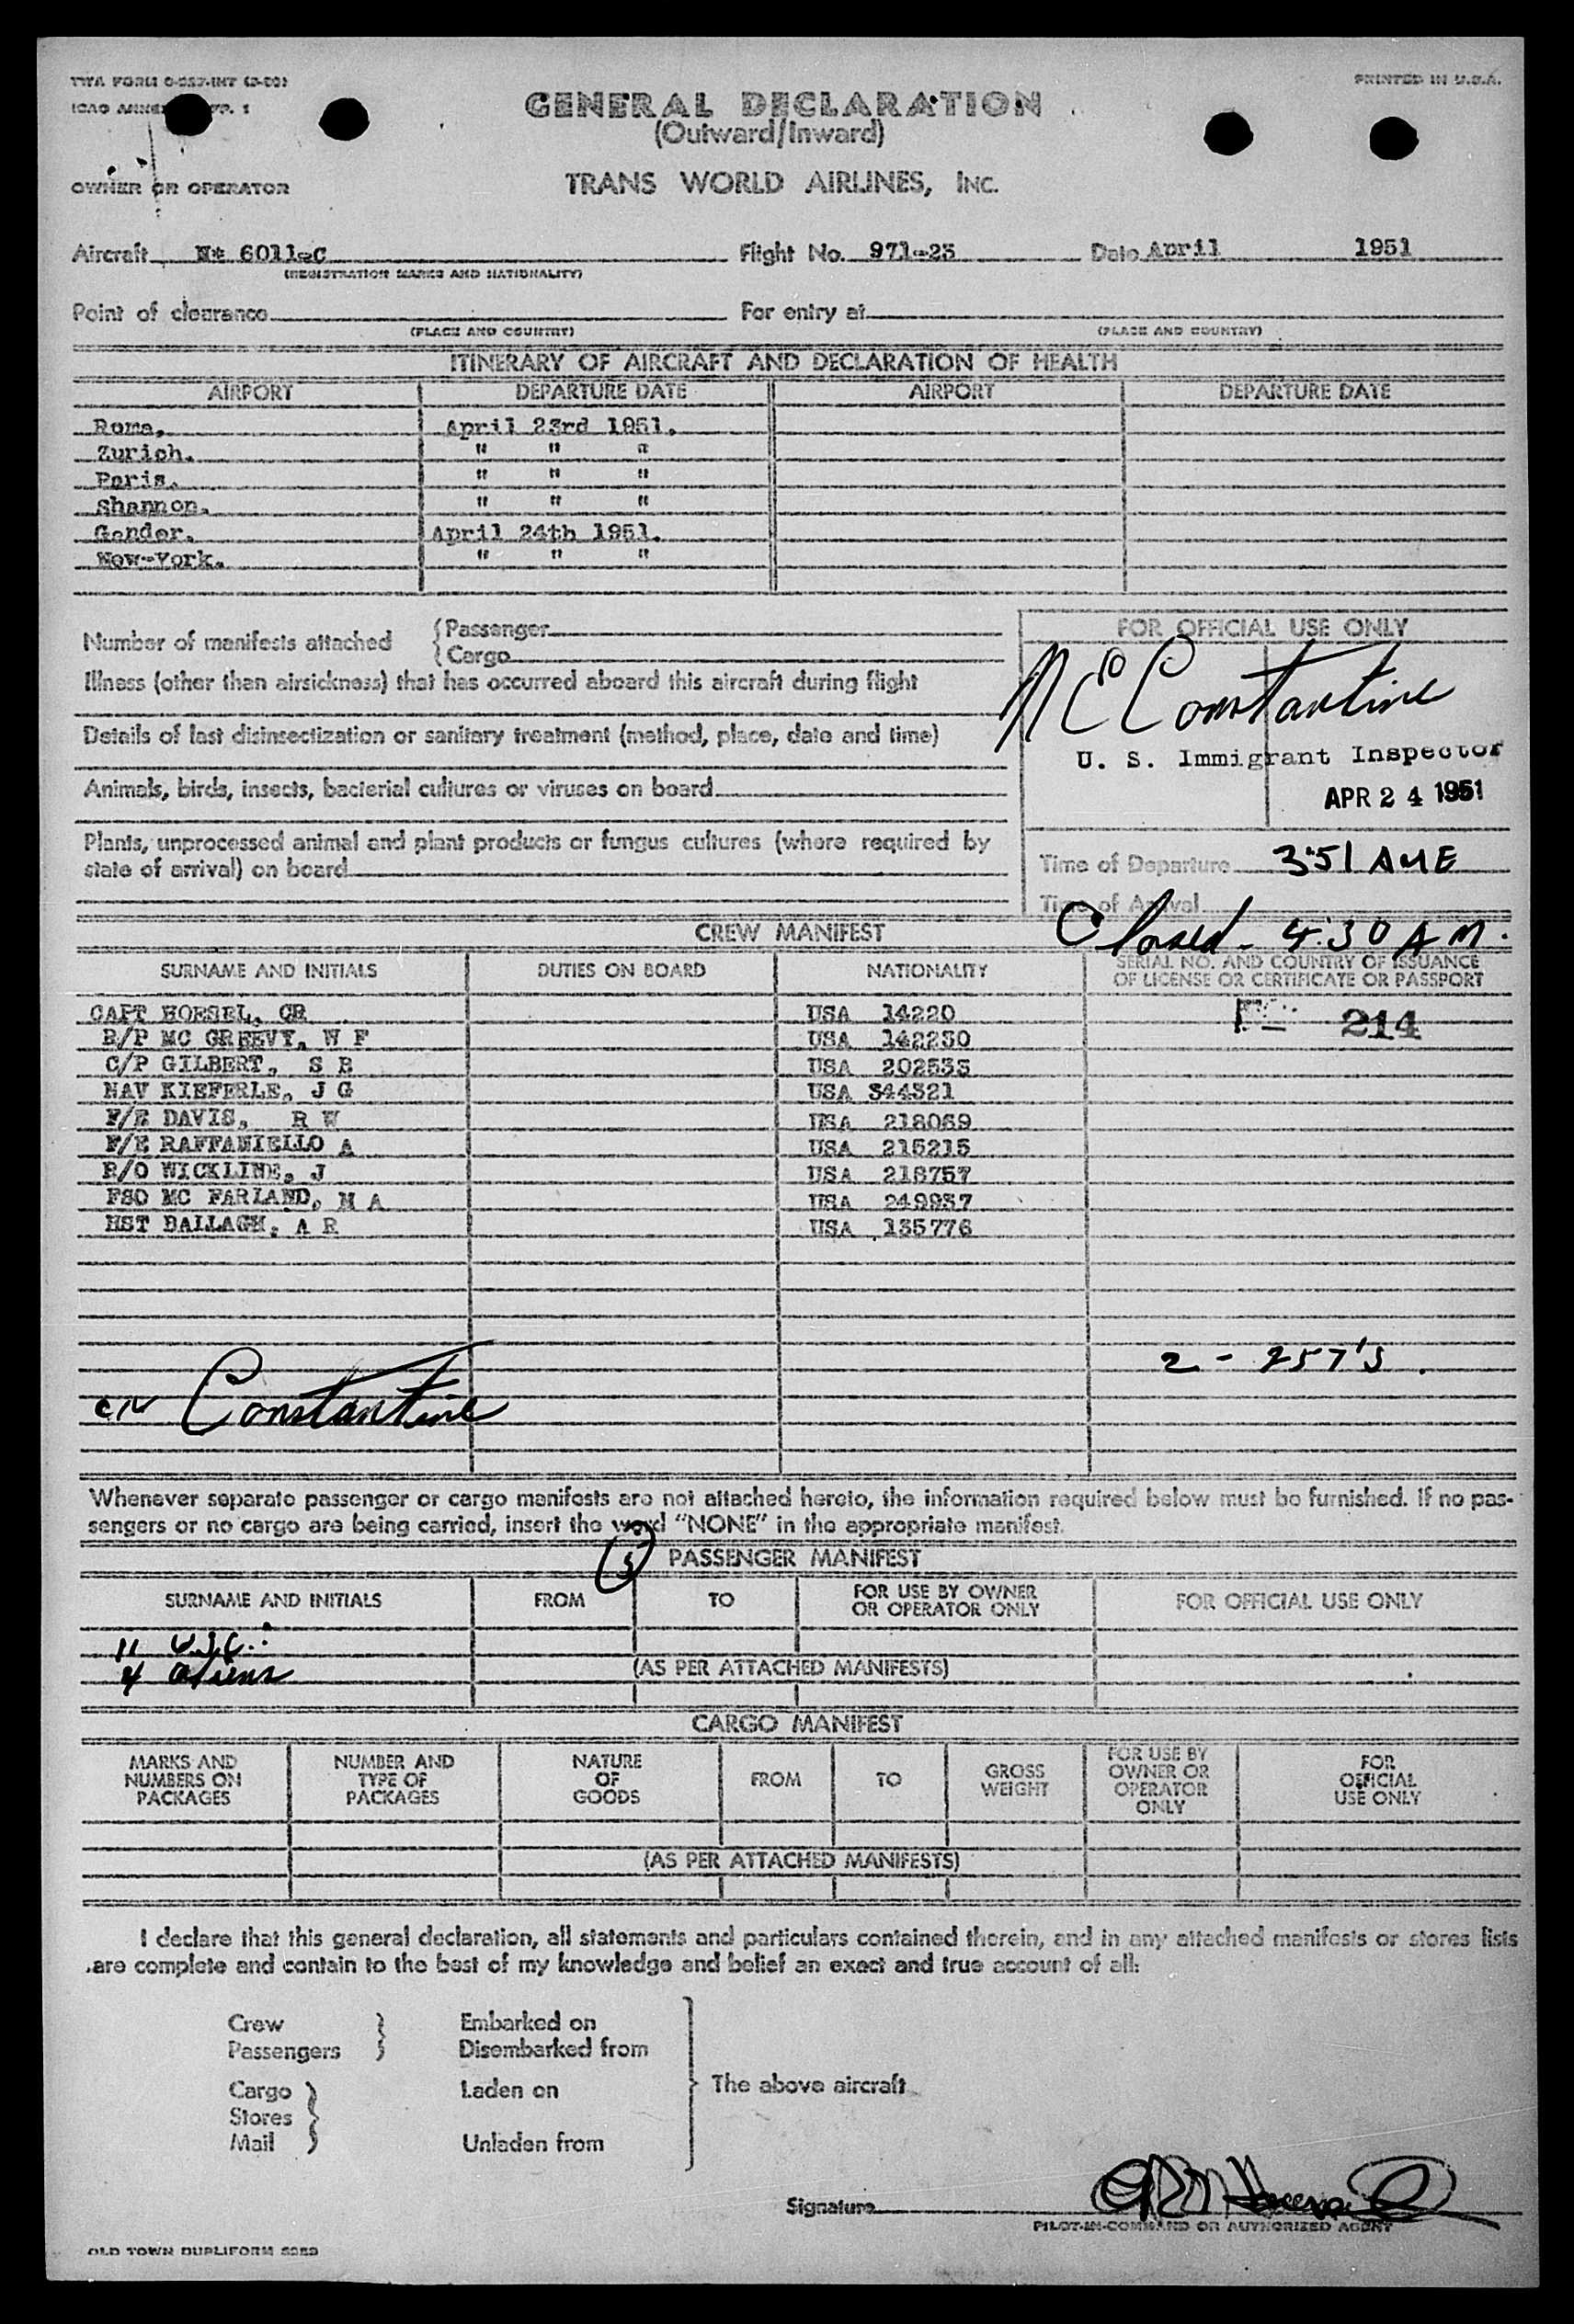 TWA FORM O-257-INT
PRINTED IN U.S.A.
ICAO ANNEX
GENERAL DECLARATION
(Outward/Inward)
OWNER OR OPERATOR
TRANS WORLD AIRLINES, INC.
Aircraft N* 6011-C Flight No. 971-23 Date April 1951
(REGISTRATION MARKS AND NATIONALITY)
Point of clearance For entry at
(PLACE AND COUNTRY) (PLACE AND COUNTRY)
ITINERARY OF AIRCRAFT AND DECLARATION OF HEALTH
AIRPORT DEPARTURE DATE AIRPORT DEPARTURE DATE
Roma, April 23rd 1951.
Zurich. " " "
Paris. " " "
Shannon. " " "
Gander. April 24th 1951.
New-York. " " "
Number of manifests attached { Passenger
{ Cargo
FOR OFFICIAL USE ONLY
Illness (other than airsickness) that has occurred aboard this aircraft during flight
Constantine
Details of last disinsectization or sanitary treatment (method, place, date and time)
U. S. Immigrant Inspector
Animals, birds, insects, bacterial cultures or viruses on board
APR 24 1951
Plants, unprocessed animal and plant products or fungus cultures (where required by
state of arrival) on board
Time of Departure 3:51 AME
Time of Arrival
Closed - 4:30 AM.
CREW MANIFEST
SURNAME AND INITIALS DUTIES ON BOARD NATIONALITY SERIAL NO. AND COUNTRY OF ISSUANCE
OF LICENSE OR CERTIFICATE OR PASSPORT
CAPT HOESEL, GR USA 14220
214
B/P MC GREEVY, W F USA 142230
C/P GILBERT, S B USA 202533
NAV KIEFERLE, J G USA 344321
F/E DAVIS, R W USA 218069
F/E RAFFANIELLO A USA 215215
R/O WICKLINE, J USA 218757
FSO MC FARLAND, M A USA 249937
HST BALLAGH, A R USA 135776
2 - 257's
Constantine
Whenever separate passenger or cargo manifests are not attached hereto, the information required below must be furnished. If no pas-
sengers or no cargo are being carried, insert the word "NONE" in the appropriate manifest.
PASSENGER MANIFEST
SURNAME AND INITIALS FROM TO FOR USE BY OWNER OR OPERATOR ONLY FOR OFFICIAL USE ONLY
11 USC.
4 aliens
(AS PER ATTACHED MANIFESTS)
CARGO MANIFEST
MARKS AND NUMBERS ON PACKAGES NUMBER AND TYPE OF PACKAGES NATURE OF GOODS FROM TO GROSS WEIGHT FOR USE BY OWNER OR OPERATOR ONLY FOR OFFICIAL USE ONLY
(AS PER ATTACHED MANIFESTS)
I declare that this general declaration, all statements and particulars contained therein, and in any attached manifests or stores lists
are complete and contain to the best of my knowledge and belief an exact and true account of all:
Crew Embarked on
Passengers Disembarked from
Cargo Laden on The above aircraft
Stores
Mail Unladen from
Signature
PILOT-IN-COMMAND OR AUTHORIZED AGENT
OLD TOWN DUPLIFORM